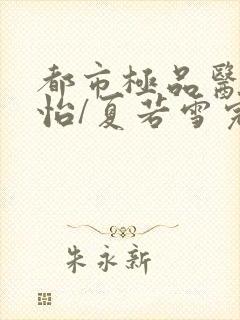 都市極品醫
怡/夏若雪完
朱永新